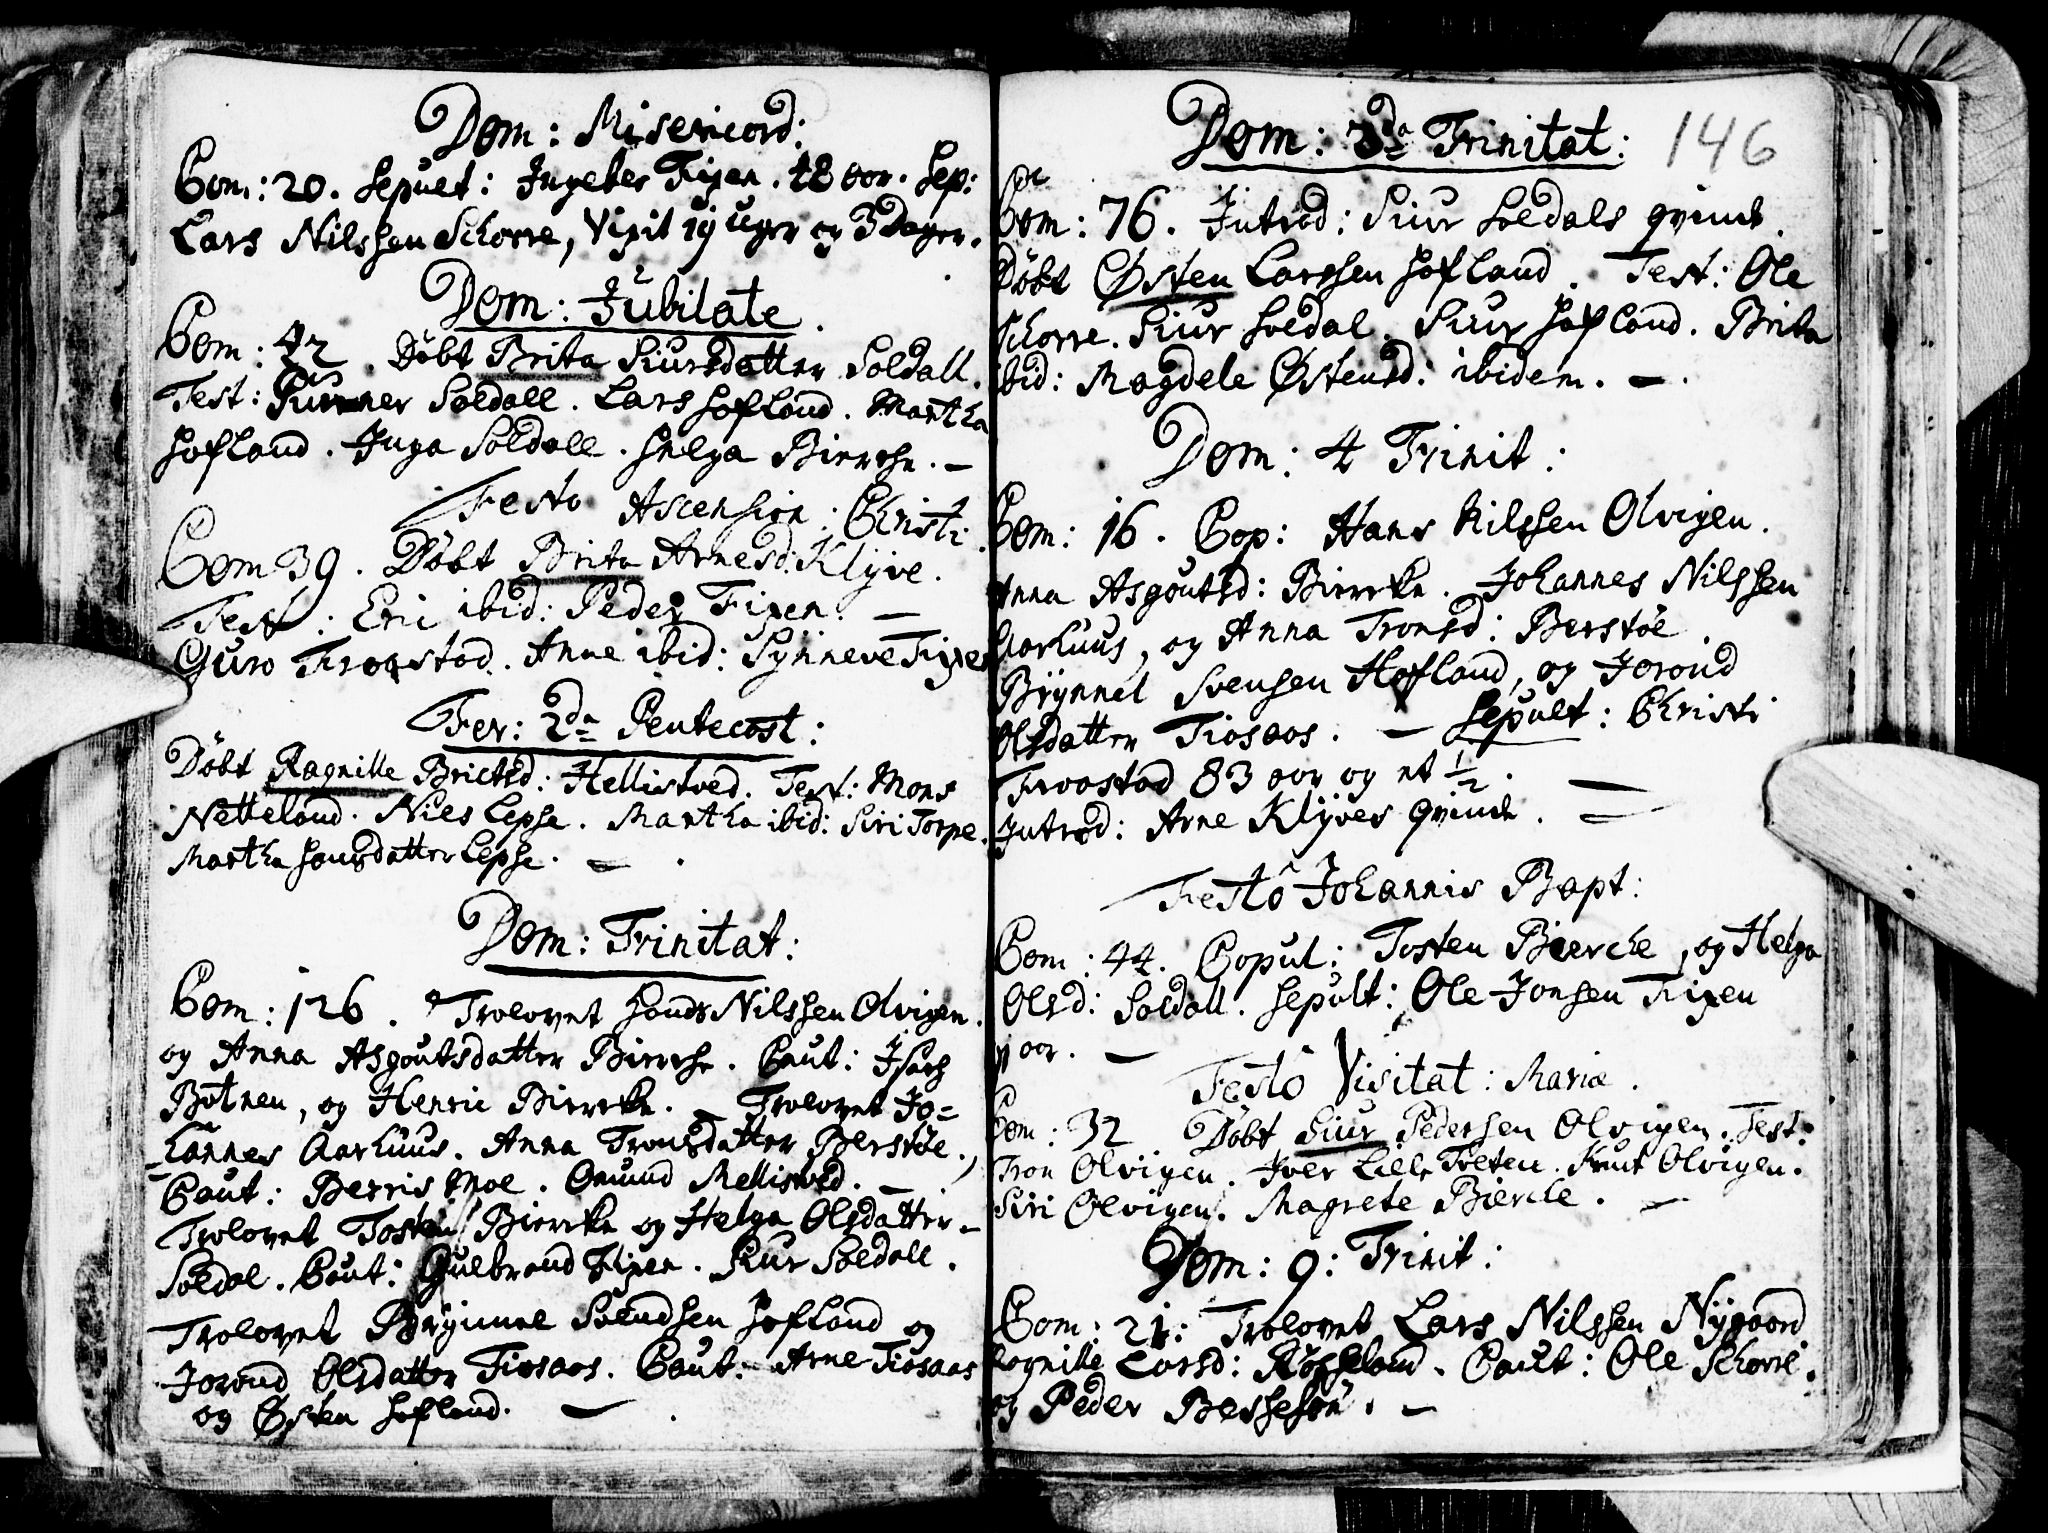 Dom: Misericord:
Com: 20. Sepult: Ingeber Fixen. 18 aar. Sep:
Lars Nilssen Schorre, Vixit 19 Uger og 3 Dager.
Dom: Jubilate.
Com: 42. Döbt Brita Siursdatter Soldall.
Test: Soldall. Lars Hofland. Martha
Hofland. Inga Soldall. Helga Biercke. —
Festo Ascension: Christi.
Com 39. Döbt Brita Arnesd: Klÿve.
Test: Eri ibid: Peder Fixen. —
Guro Froestad. Anne ibid: Sÿnneve Fixen
Fer: 2da Pentecost:
Döbt Ragnille Brictsd: Hellistved. Test: Mons
Netteland. Niels Lepse. Martha ibid: Siri Torpe.
Martha Hansdatter Lepse. —
Dom: Trinitat:
Com: 126. Trolovet Hans Nilssen Olvigen.
og Anna Asgoutsdatter Biercke. Caut: Isach
Botnen, og Henric Biercke. — Trolovet Jo=
hannes Aarhuus. Anna Tronsdatter Berstöe.
Caut: Berris Moe. Omund Mellistved. —
Trolovet Tosten Biercke og Helga Olsdatter
Soldal. Caut: Gulbrand Fixen. Siur Soldall.
Trolovet Brÿnnel Svendsen Hofland og
Jorond Olsdatter Tiosaas. Caut: Arne Tiosaas
og Østen Hofland. —
146
Dom: 3da Trinitat:
Com: 76. Introd: Siur Soldals qvinde.
Döbt Østen Larssen Hofland. Test: Ole
Schorre. Siur Soldal. Siur Hofland. Brita
ibid: Magdele Østensd: ibidem. —
Dom: 4 Trinit:
Com: 16. Cop: Hans Nilssen Olvigen.
Anna Asgoutsd: Biercke. Johannes Nilssen
Aarhuus, og Anna Tronsd: Berstöe.
Brÿnnel Svensen Hofland, og Jorond
Olsdatter Tiosaas. — Sepult: Christi
Froastad 83 aar og et 1/2.
Introd: Arne Klÿves qvinde.
Festo Johannis Bapt:
Com: 44. Copul: Tosten Biercke, og Helga
Olsd: Soldall. Sepult: Ole Jonsen Fixen
aar. —
Festo Visitat: Mariæ.
Com: 32 Döbt Siur Pedersen Olvigen. Test:
Tron Olvigen. Iver Lille Tveten. Knut Olvigen.
Siri Olvigen. Magrete Biercke. —
Dom: 9: Trinit:
Com: 21: Trolovet Lars Nilssen Nÿgaard
Ragnille Larsd: Röysseland. Caut: Ole Schorre.
og Peder Bessesön. —